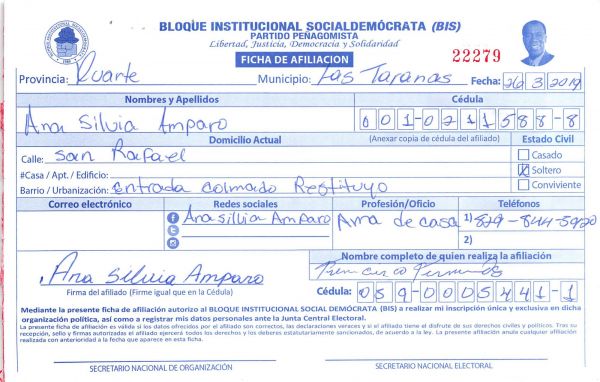 BLOQUE INSTITUCIONAL SOCIALDEMÓCRATA (BIS)
PARTIDO PEÑAGOMISTA
Libertad, Justicia, Democracia y Solidaridad
FICHA DE AFILIACION
22279
Provincia: Duarte Municipio: Las Taranas Fecha: 26 3 2019
Nombres y Apellidos Cédula
Ana Silvia Amparo 001-0211588-8
Domicilio Actual (Anexar copia de cédula del afiliado) Estado Civil
Calle: San Rafael Casado
#Casa / Apt. / Edificio: Soltero
Barrio / Urbanización: entrada colmado Restituyo Conviviente
Correo electrónico Redes sociales Profesión/Oficio Teléfonos
Ana silvia Amparo Ama de casa 1) 829-844-5920
2)
Nombre completo de quien realiza la afiliación
Ana Silvia Amparo
Firma del afiliado (Firme igual que en la Cédula) Cédula: 059-0005441-1
Mediante la presente ficha de afiliación autorizo al BLOQUE INSTITUCIONAL SOCIAL DEMÓCRATA (BIS) a realizar mi inscripción única y exclusiva en dicha
organización política, así como a registrar mis datos personales ante la Junta Central Electoral.
La presente ficha de afiliación es válida si los datos ofrecidos por el afiliado son correctos, las declaraciones veraces y si el afiliado tiene el disfrute de sus derechos civiles y políticos. Tras su
recepción, sello y firmas autorizadas el afiliado ejercerá todos los derechos y los deberes estatutariamente sancionados, de acuerdo a la ley. La presente afiliación anula cualquier afiliación
realizada con anterioridad a la fecha que aparece en esta ficha.
SECRETARIO NACIONAL DE ORGANIZACIÓN SECRETARIO NACIONAL ELECTORAL